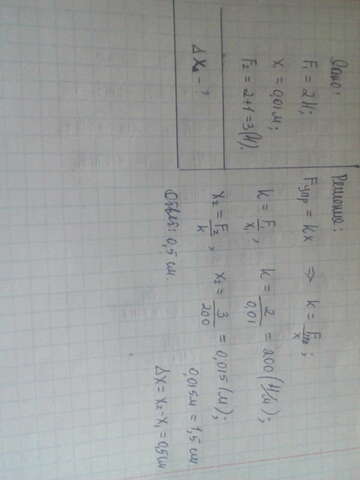 Дано:
F₁ = 2 Н;
x = 0,01 м;
F₂ = 2+1=3(Н).
Δx₂ - ?
Решение:
Fупр = kx ⇒ k = Fупр/x;
k = F₁/x₁; k = 2/0,01 = 200 (Н/м);
x₂ = F₂/k; x₂ = 3/200 = 0,015 (м);
0,015м = 1,5 см
Δx = x₂-x₁ = 0,5 см
Ответ: 0,5 см.